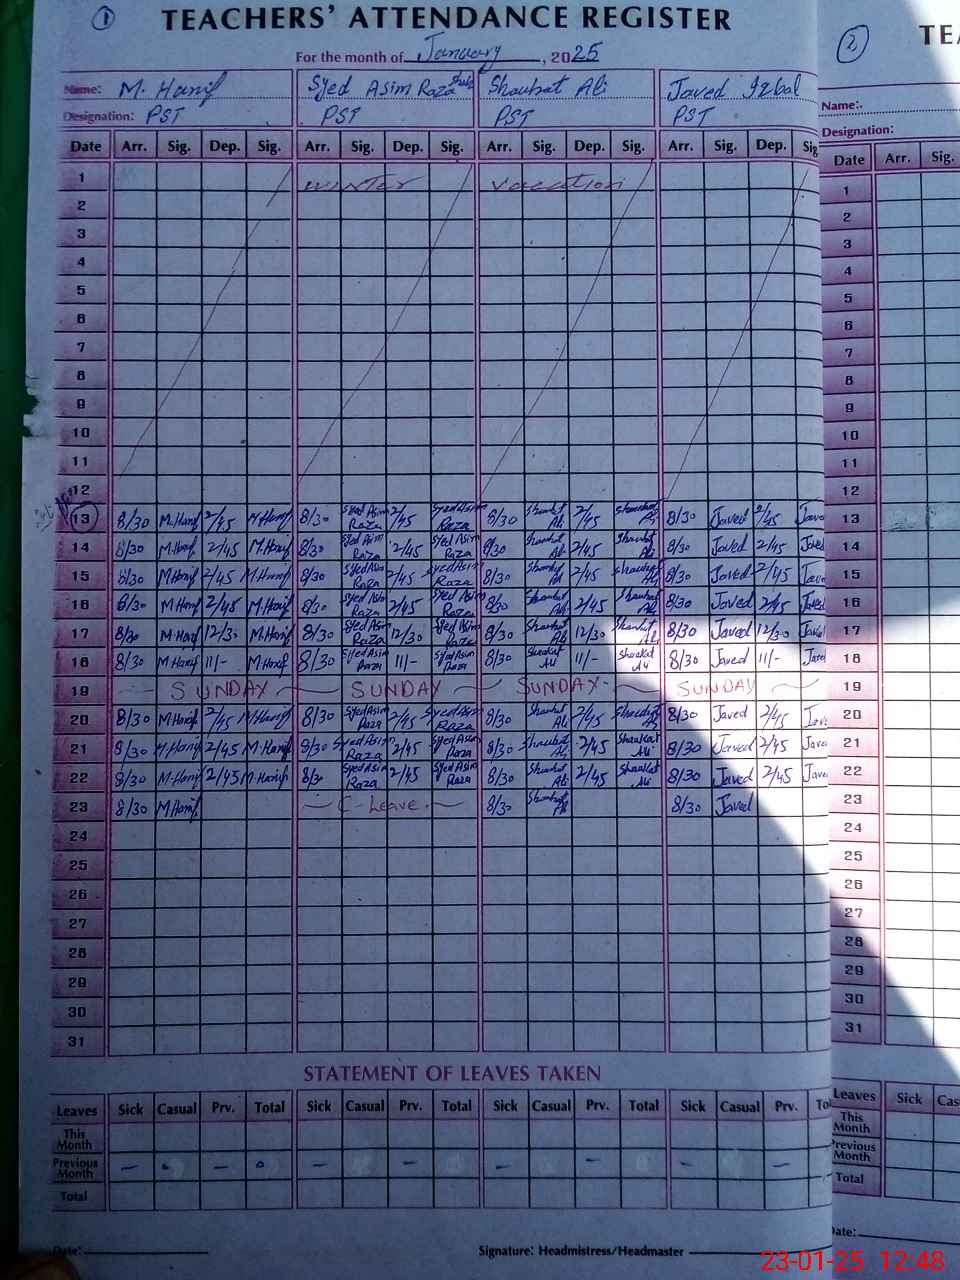 1
TEACHERS' ATTENDANCE REGISTER
For the month of January, 2025
Name: M. Hanif Syed Asim Raza Shaukat Ali Javed Iqbal
Designation: PST PST PST PST
Date Arr. Sig. Dep. Sig. Arr. Sig. Dep. Sig. Arr. Sig. Dep. Sig. Arr. Sig. Dep. Sig
1 WINTER vacation
2
3
4
5
6
7
8
9
10
11
12
13 8/30 M.Hanif 2/45 M.Hanif 8/30 Syed Asim Raza 2/45 Syed Asim Raza 8/30 Shaukat Ali 2/45 Shaukat Ali 8/30 Javed 2/45 Javed
14 8/30 M.Hanif 2/45 M.Hanif 8/30 Syed Asim Raza 2/45 Syed Asim Raza 8/30 Shaukat Ali 2/45 Shaukat Ali 8/30 Javed 2/45 Javed
15 8/30 M.Hanif 2/45 M.Hanif 8/30 Syed Asim Raza 2/45 Syed Asim Raza 8/30 Shaukat Ali 2/45 Shaukat Ali 8/30 Javed 2/45 Jave
16 8/30 M.Hanif 2/45 M.Hanif 8/30 Syed Asim Raza 2/45 Syed Asim Raza 8/30 Shaukat Ali 2/45 Shaukat Ali 8/30 Javed 2/45 Javed
17 8/30 M.Hanif 12/30 M.Hanif 8/30 Syed Asim Raza 12/30 Syed Asim Raza 8/30 Shaukat Ali 12/30 Shaukat Ali 8/30 Javed 12/30 Javed
18 8/30 M.Hanif 11/- M.Hanif 8/30 Syed Asim Raza 11/- Syed Asim Raza 8/30 Shaukat Ali 11/- Shaukat Ali 8/30 Javed 11/- Javed
19 SUNDAY SUNDAY SUNDAY SUNDAY
20 8/30 M.Hanif 2/45 M.Hanif 8/30 Syed Asim Raza 2/45 Syed Asim Raza 8/30 Shaukat Ali 2/45 Shaukat Ali 8/30 Javed 2/45 Jave
21 8/30 M.Hanif 2/45 M.Hanif 8/30 Syed Asim Raza 2/45 Syed Asim Raza 8/30 Shaukat Ali 2/45 Shaukat Ali 8/30 Javed 2/45 Jave
22 8/30 M.Hanif 2/45 M.Hanif 8/30 Syed Asim Raza 2/45 Syed Asim Raza 8/30 Shaukat Ali 2/45 Shaukat Ali 8/30 Javed 2/45 Jave
23 8/30 M.Hanif C-Leave 8/30 Shaukat Ali 8/30 Javed
24
25
26
27
28
29
30
31
STATEMENT OF LEAVES TAKEN
Leaves Sick Casual Prv. Total Sick Casual Prv. Total Sick Casual Prv. Total Sick Casual Prv. To
This Month
Previous Month - - - - - - - -
Total
Date: Signature: Headmistress/Headmaster
2
TEA
Name:
Designation:
Date Arr. Sig.
1
2
3
4
5
6
7
8
9
10
11
12
13
14
15
16
17
18
19
20
21
22
23
24
25
26
27
28
29
30
31
Leaves Sick Cas
This Month
Previous Month
Total
Date:
23-01-25 12:48